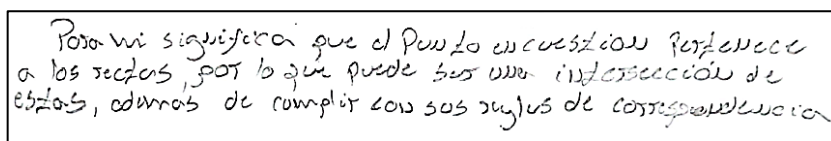 Para mi significa que el Punto en cuestion Pertenece
a los rectas, por lo que puede ser una intersección de
estas, ademas de cumplir con sus reglas de correspondencia